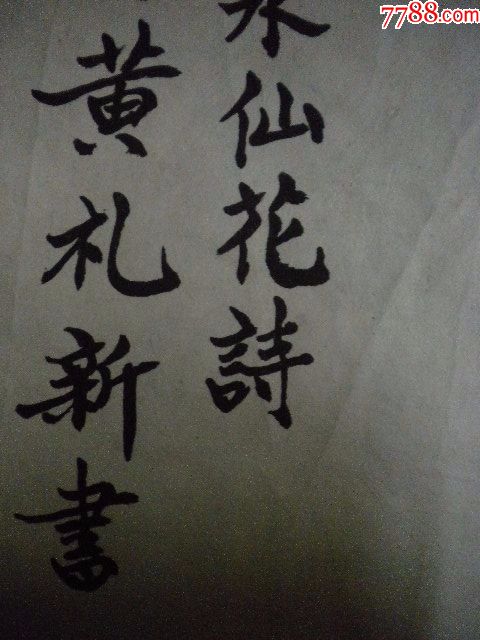 7788.com
水仙花詩
黄礼新書